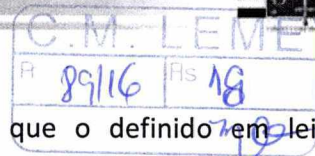 C.M. LEME
R 89/16 Fls 18
que o definido em lei